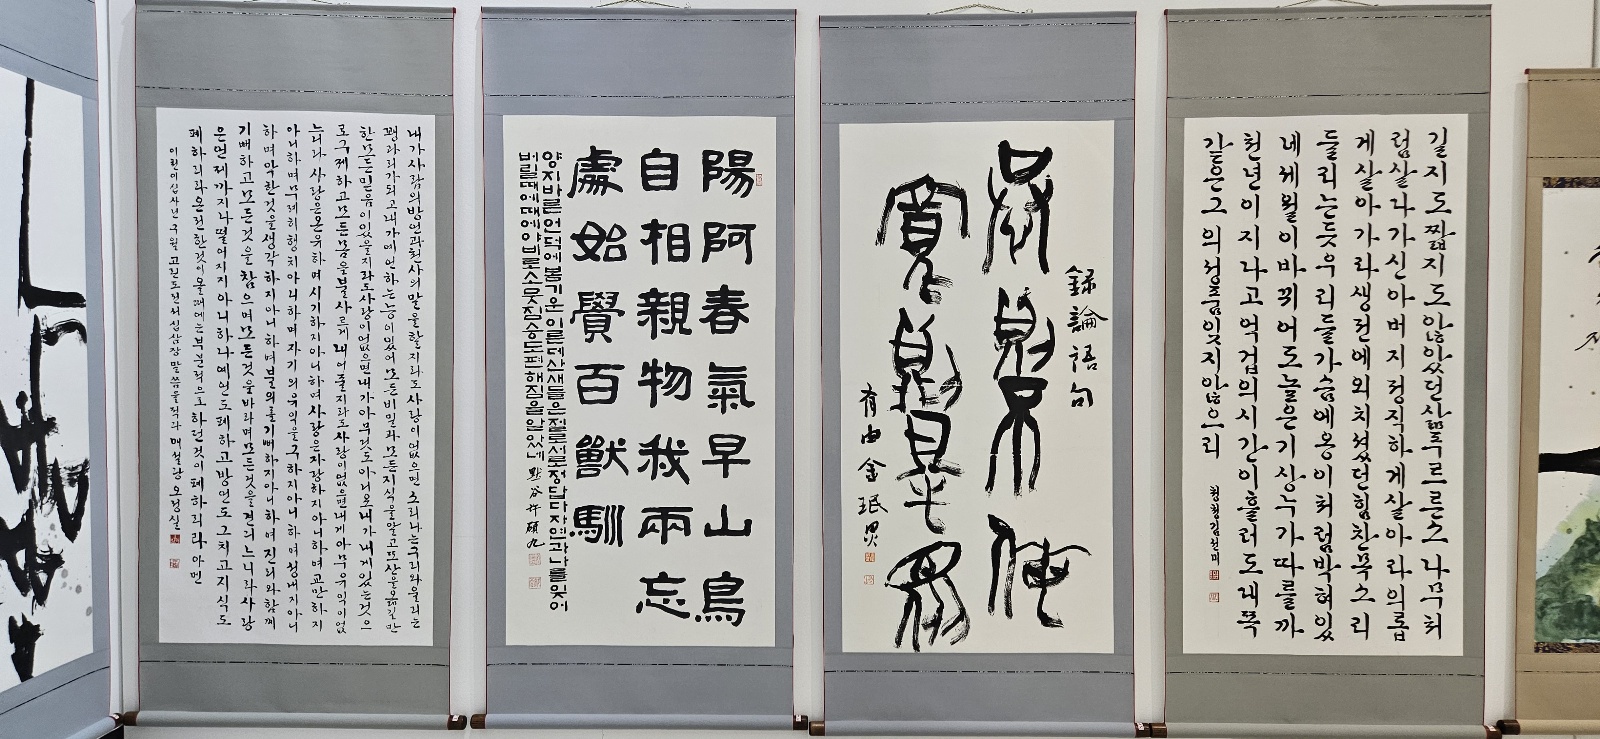 내가사람의방언과천사의말을할지라도사랑이없으면소리나는구리와울리는
꽹과리가되고내가예언하는능이있어모든비밀과모든지식을알고또산을옮길만
한모든믿음이있을지라도사랑이없으면내가아무것도아니요내가내게있는것으
로구제하고모든몸을불사르게내어줄지라도사랑이없으면내게아무유익이없
느니라사랑은온유하며시기하지아니하며사랑은자랑하지아니하며교만하지
아니하며무례히행치아니하며자기의유익을구하지아니하며성내지아니
하며악한것을생각하지아니하며불의를기뻐하지아니하며진리와함께
기뻐하고모든것을참으며모든것을바라며모든것을견디느니라사랑
은언제까지나떨어지지아니하나예언도폐하고방언도그치고지식도
폐하리라온전한것이올때에는부분적으로하던것이폐하리라아멘
이천이십사년구월고린도전서십삼장말씀을적다매설당오정실
陽阿春氣早山鳥
自相親物我兩忘
處始覺百獸馴
양지바른언덕에봄기운이른데산새들은절로서로정답다자연과나를잊어
버릴때에때에야비로소뭇짐승도편해짐을알았네 默谷許碩九
恭則不侮
寬則得衆
錄論語句
有由金珉
길지도짧지도않았던삶푸르른소나무처
럼살다가신아버지정직하게살아라의롭
게살아가라생전에외치셨던힘찬목소리
들리는듯우리들가슴에옹이처럼박혀있
네세월이바뀌어도높은기상누가따를까
천년이지나고억겁의시간이흘러도대쪽
같은그의성품잊지않으리
청청김선미